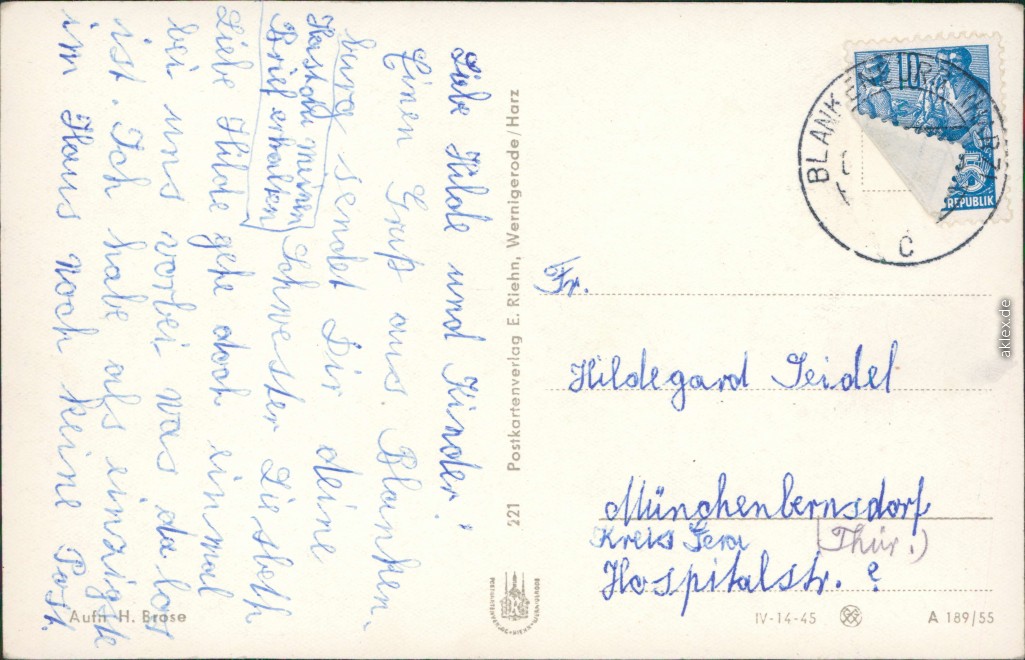 Liebe Hilde und Kinder!
Einen Gruß aus. Blanken-
burg sendet Dir deine
Schwester Liesbeth
Hast du meinen
Brief erhalten
Liebe Hilde gehe doch einmal
bei uns vorbei was da los
ist. Ich habe als einzigste
im Haus noch keine Post.
Aufn. H. Brose
221 Postkartenverlag E. Riehn, Wernigerode/Harz
10
REPUBLIK
C
Fr.
Hildegard Seidel
Münchenbernsdorf
Kreis Gera (Thür.)
Hospitalstr. ?
IV-14-45
A 189/55
aklex.de